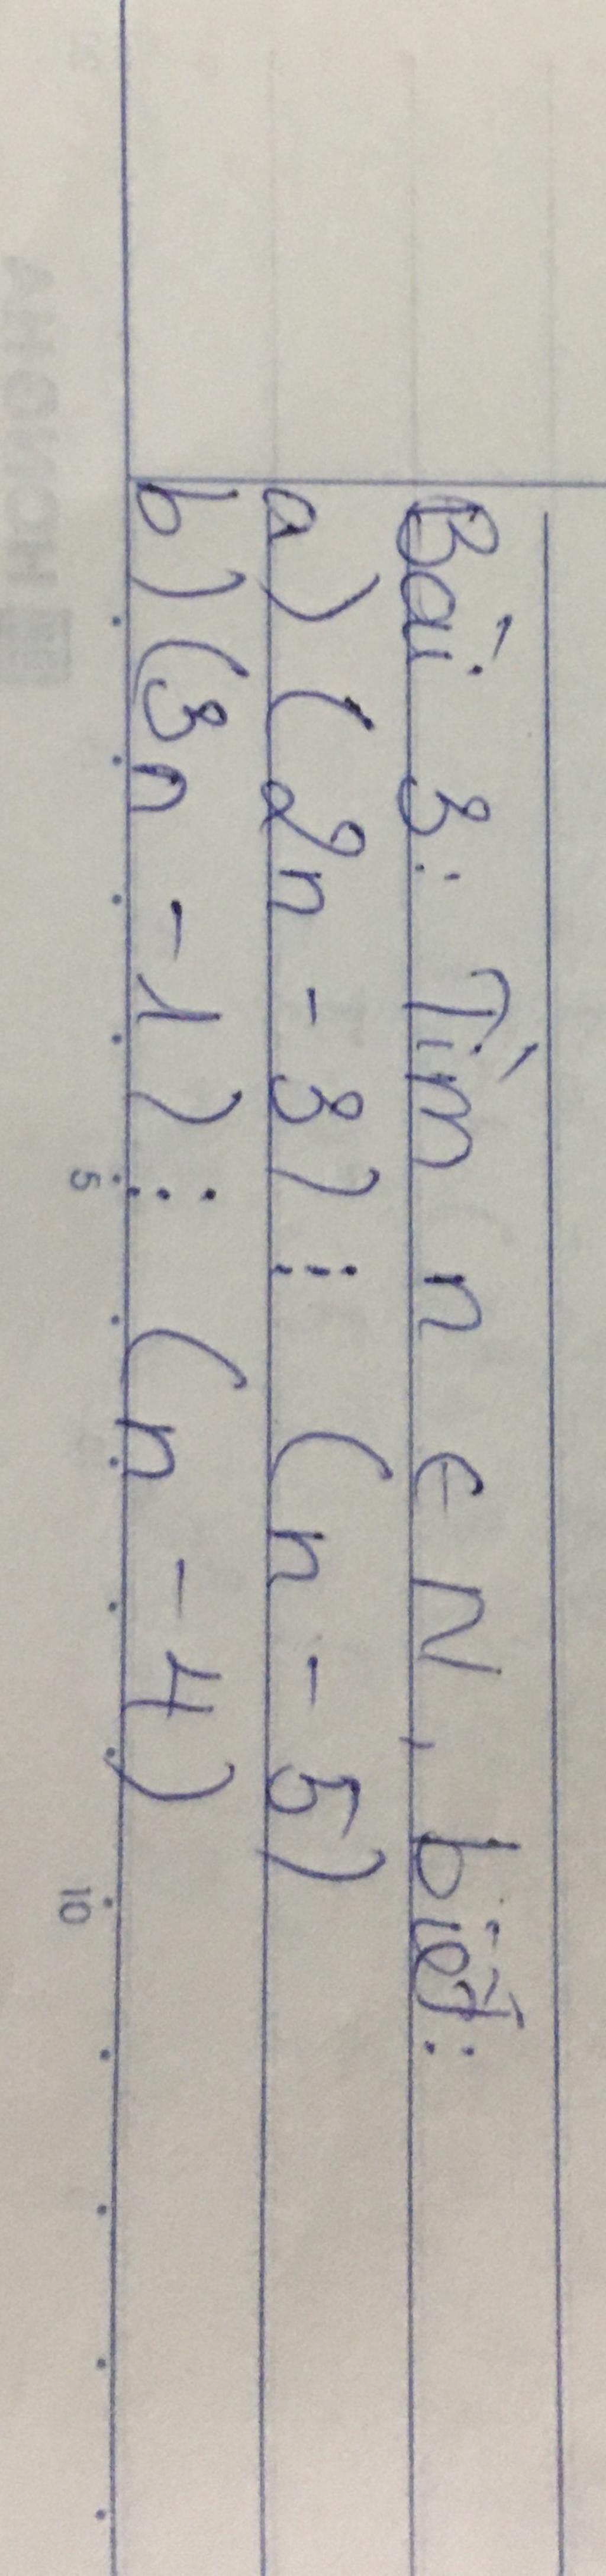 Bài 3: Tìm n ∈ N, biết:
a) (2n - 3) ⋮ (n - 5)
b) (3n - 1) ⋮ (n - 4)
5 10
HONG HA